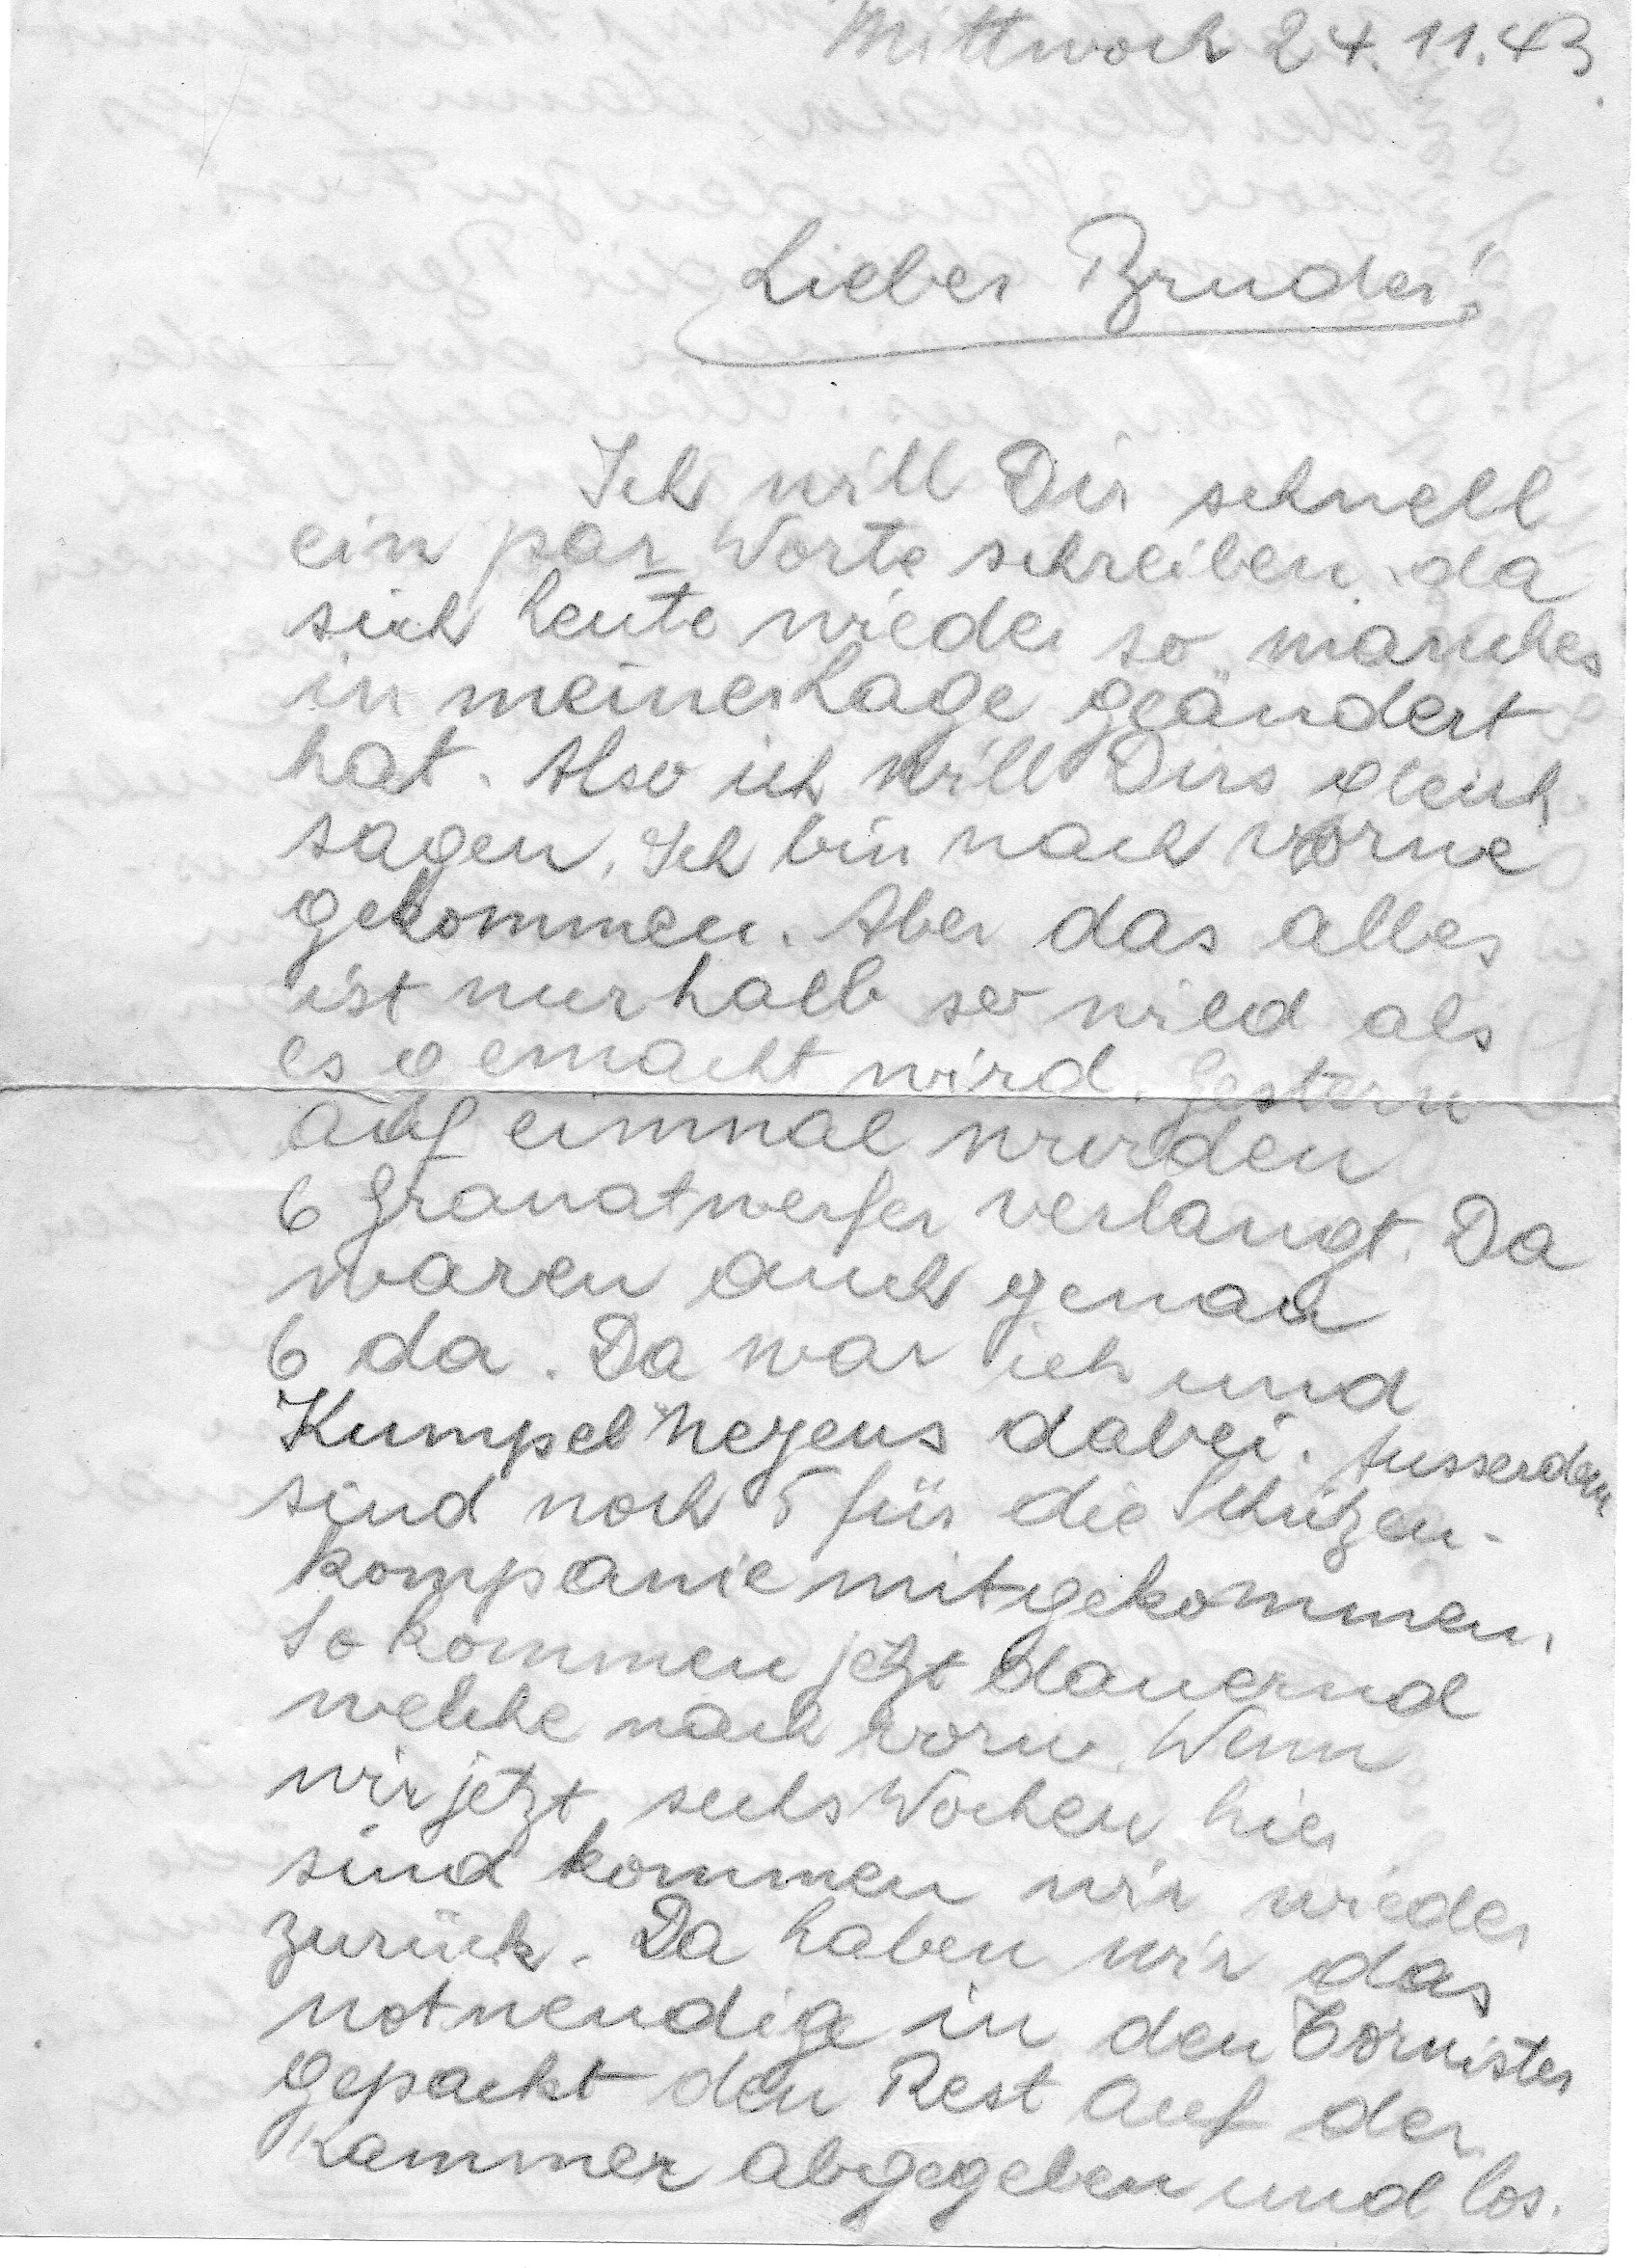 Mittwoch 24.11.43.
Lieber Bruder!
Ich will Dir schnell
ein par Worte schreiben, da
sich heute wieder so manches
in meiner Lage geändert
hat. Also ich will Dirs gleich
sagen. Ich bin nach vorne
gekommen. Aber das alles
ist nur halb so wild als
es gemacht wird. Gestern
auf einmal wurden
6 Granatwerfer verlangt. Da
waren auch genau
6 da. Da war ich und
Kumpel dabei. Ausserdem
sind noch 5 für die Schützen-
kompanie mitgekommen.
So kommen jetzt dauernd
welche nach vorn. Wenn
wir jetzt sechs Wochen hier
sind kommen wir wieder
zurück. Da haben wir das
notwendige in den Tornister
gepackt den Rest auf der
Kammer abgegeben und los.